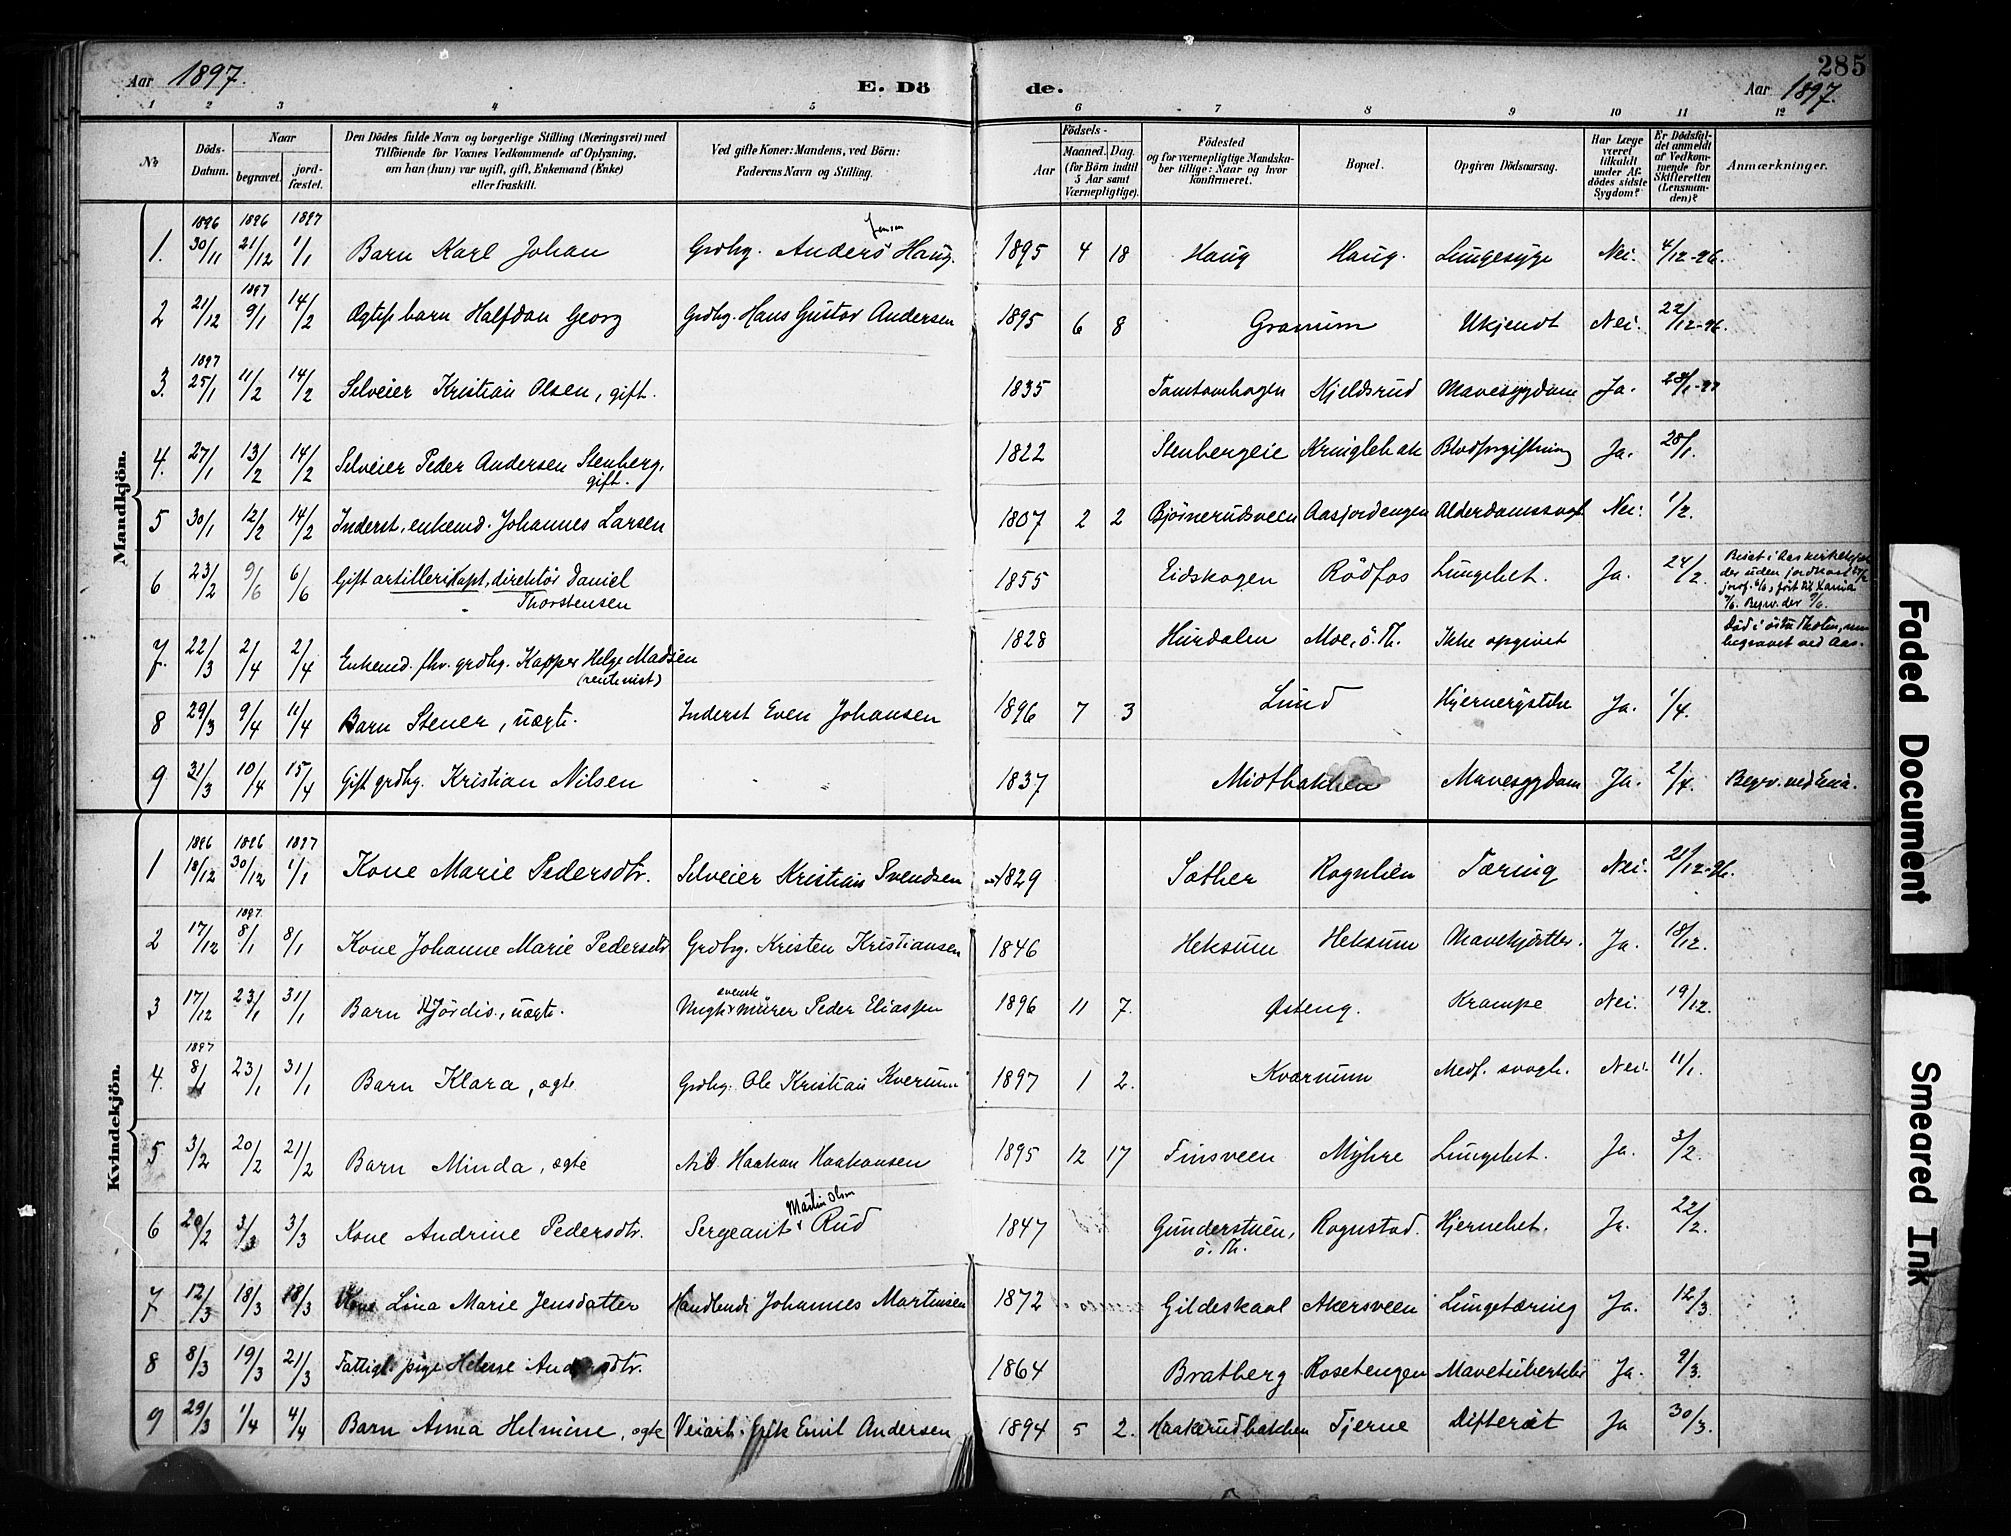 285
Aar 1897.
E. Dö de.
Aar 1897.
1 2 3 4 5 6 7 8 9 10 11 12
No
Döds-Datum.
Naar
begravet.
jord-fæstet.
Den Dödes fulde Navn og borgerlige Stilling (Næringsvei) med
Tilföiende for Voxnes Vedkommende af Oplysning,
om han (hun) var ugift, gift, Enkemand (Enke)
eller fraskilt.
Ved gifte Koner: Mandens, ved Börn:
Faderens Navn og Stilling.
Födsels-
Aar
Maaned. Dag
(for Börn indtil
5 Aar samt
Værnepligtige).
Födested
og for værnepligtige Mandska-
ber tillige: Naar og hvor
konfirmeret.
Bopæl.
Opgiven Dödsaarsag.
Har Læge
været
tilkaldt
under Af-
dödes sidste
Sygdom?
Er Dödsfal-
det anmeldt
af Vedkom-
mende for
Skifteretten
(Lensman-
den)?
Anmærkninger.
Mandkjön.
1896 1896 1897
1. 30/11 21/12 1/1 Barn Karl Johan Grdbg. Anders Jensen Haug. 1895 4 18 Haug Haug. Lungesyge Nei. 4/12-96.
1897
2 21/12 9/1 14/2 Ægtef. barn Halfdan Georg Grdbg. Hans Gustav Andersen 1895 6 8 Granum Ukjendt Nei. 22/12-96.
1897
3. 25/1 11/2 14/2 Selveier Kristian Olsen, gift. 1835 Tomtomhagen Kjeldsrud Mavesygdom Ja. 28/1-97
4. 27/1 13/2 14/2 Selveier Peder Andersen Stenberg, 1822 Stenbergeie Kringlebak Blodforgiftning Ja. 28/1.
gift.
5 30/1 12/2 14/2 Inderst, enkemd. Johannes Larsen 1807 2 2 Bjørnerudsveen Aasjordengen Alderdomssvagh. Nei. 1/2.
6 23/2 9/6 6/6 Gift artillerikapt., direktör Daniel 1855 Eidskogen Rödfos Lungebet. Ja. 24/2.
Thorstensen
7. 22/3 2/4 2/4 Enkemd. fhv. grdbg. Kasper Helge Madsen 1828 Hurdalen Moe, ö. Th. Ikke opgivet Död i östre Thoten, men
(rentenist) begravet ved Aas.
8 29/3 9/4 11/4 Barn Stener, uægte. Inderst Even Johansen 1896 7 3 Lund Hjernerystelse Ja. 1/4.
9 31/3 10/4 15/4 Gift grdbg. Kristian Nilsen 1837 Midtbakken Mavesygdom Ja. 2/4. Begrv. ved Eina.
Kvindekjön.
1896 1896 1897
1 18/12 30/12 1/1 Kone Marie Pedersdtr. Selveier Kristian Svendsen 1829 Sæther Rognlien Tæring Nei. 21/12-96.
1897.
2 17/12 8/1 8/1 Kone Johanne Marie Pedersdtr Grdbg. Kristen Kristiansen 1846 Heksum Heksum Mavekjørtler. Ja. 18/12.
3 17/12 23/1 31/1 Barn Hjördis, uægte. Ungk. svensk murer Peder Eliassen 1896 11 7. Østeng. Krampe Nei. 19/12.
1897
4. 8/1 23/1 31/1 Barn Klara, ægte Grdbg. Ole Kristian Kvernum 1897 1 2. Kvernum Medf. svagh. Nei. 11/1.
5 3/2 20/2 21/2 Barn Minda, ægte Arb. Haakon Haakonsen 1895 12 17 Finsveen Myhre Lungebet. Ja. 3/2.
6 20/2 3/3 3/3 Kone Andrine Pedersdtr. Sergeant Martin Olsen Rud 1847 Gunderstuen, Rognstad. Hjernebet. Ja. 22/2.
ö. Th.
7. 12/3 18/3 18/3 Kone Lina Marie Jensdatter Handlende Johannes Martinsen 1872 Gildeskaal Akersveen Lungetæring Ja. 12/3.
8 8/3 19/3 21/3 Fattigl. pige Helene Andersdtr. 1864 Bratberg Rosetengen Mavetuberkler Ja. 9/3.
9 29/3 1/4 4/4 Barn Anna Helmine, ægte Veiarb. Erik Emil Andersen 1894 5 2. Haakerudbakken Tjerne Difterit Ja 30/3.
Faded Document
Smeared Ink